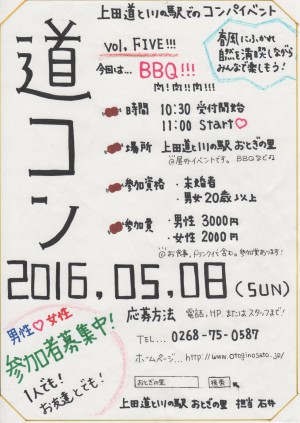 上田道と川の駅でのコンパイベント
道コン
vol. FIVE!!!
今回は… BBQ!!!
肉!肉!!肉!!!
春風にふかれ
自然も満喫しながら
みんなで楽しもう!
時間 10:30 受付開始
11:00 Start♡
場所 上田道と川の駅 おとぎの里
@屋外イベントです。BBQなどなど
参加資格 ・未婚者
・男女20歳以上
参加費 ・男性 3000円
・女性 2000円
@お食事、ドリンク代含む。
2016.05.08 (SUN)
男性♡女性
参加者募集中!
1人でも!
お友達とでも!
応募方法 電話、HP またはスタッフまで!
TEL... 0268-75-0587
ホームページ... http://www.otoginosato.jp/
おとぎの里 検索
上田道と川の駅 おとぎの里 担当 石井